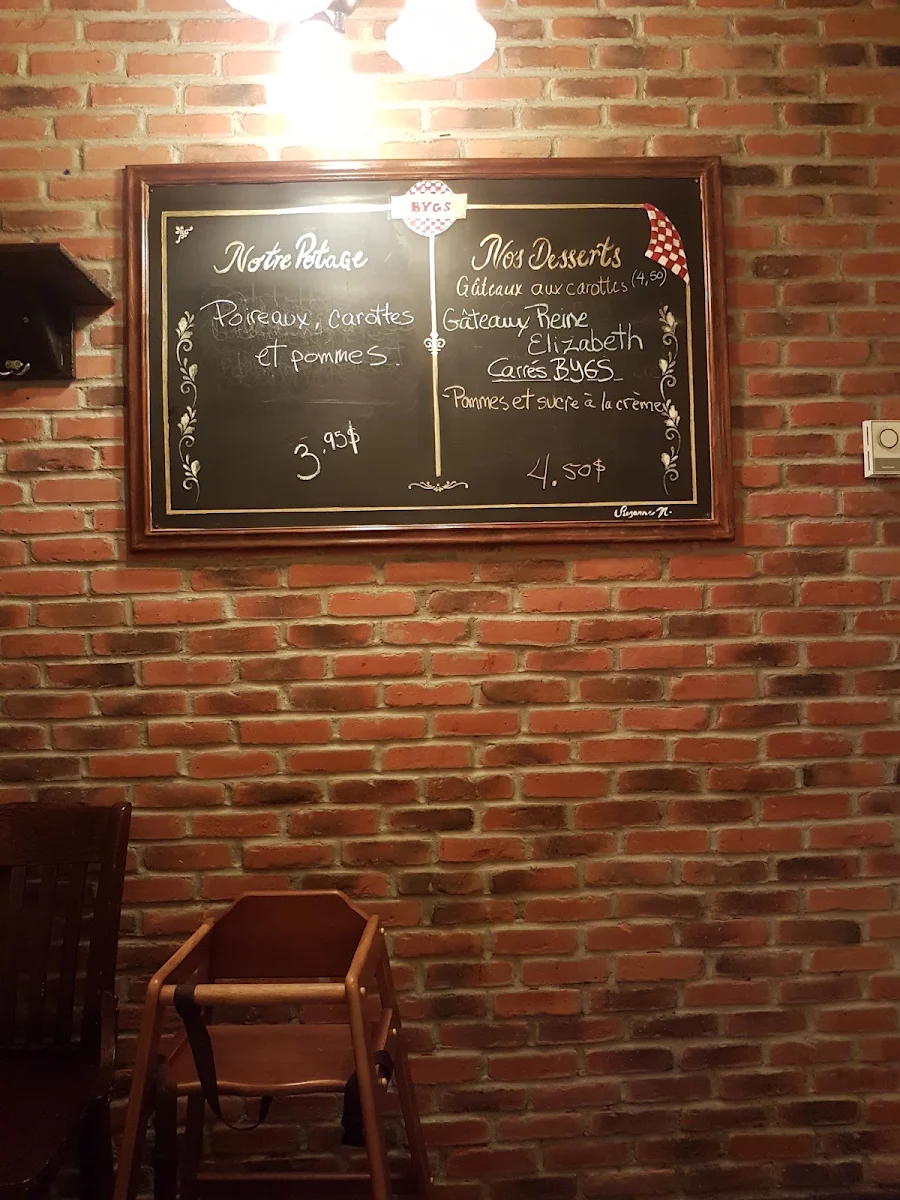 BYGS
Notre Potage
Poireaux, carottes
et pommes.
3.95$
Nos Desserts
Gâteaux aux carottes (4,50)
Gâteaux Reine
Elizabeth
Carrés BYGS
-Pommes et sucre à la crème
4.50$
Suzanne N.